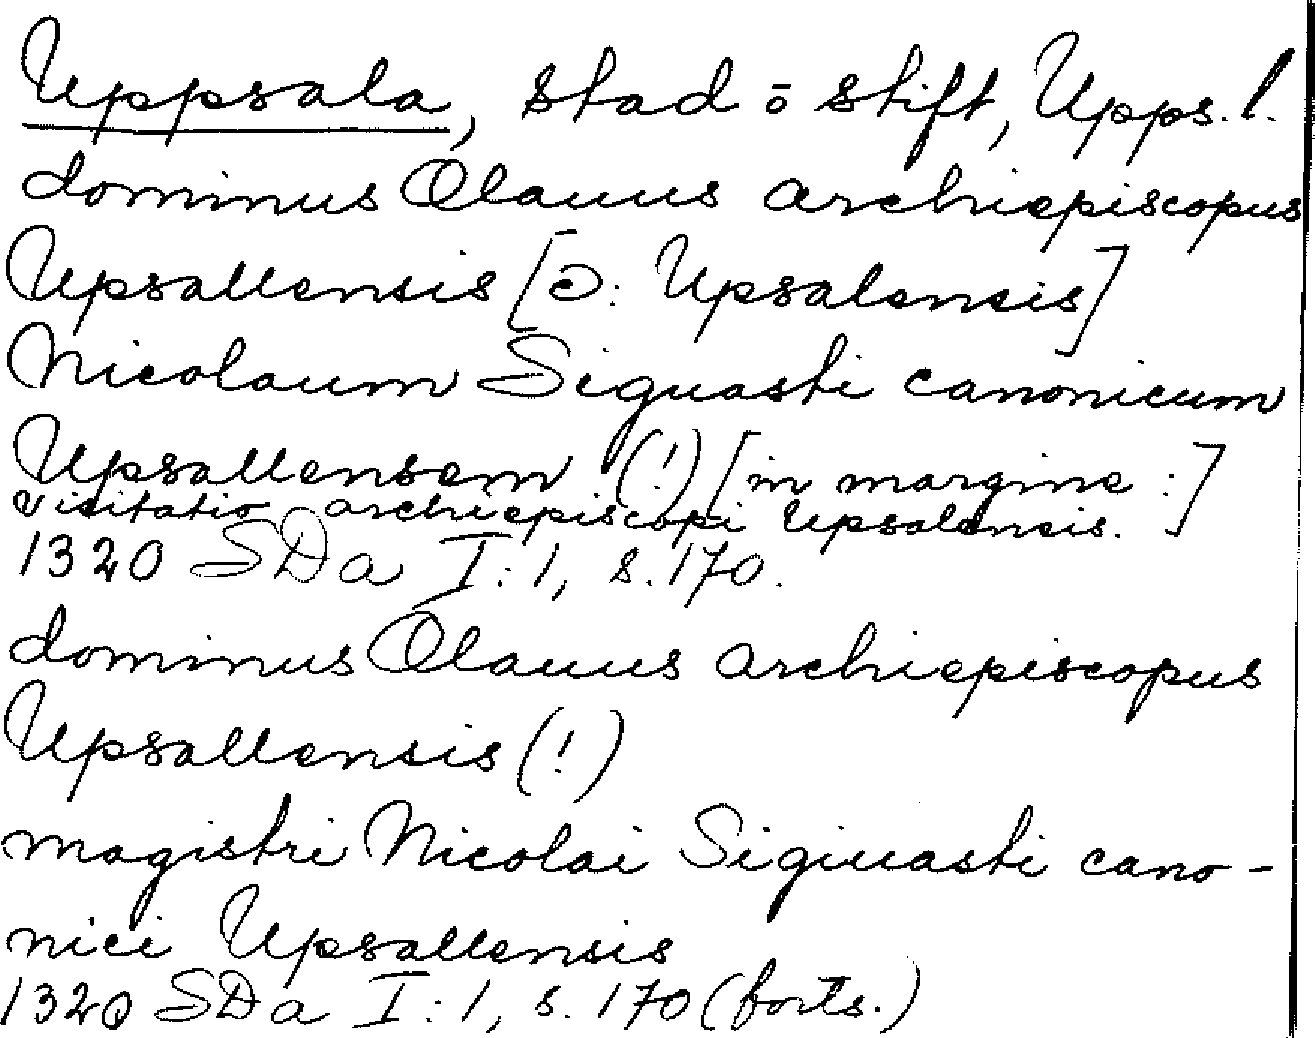 Uppsala, stad o stift, Upps. l.
dominus Olauus archiepiscopus
Upsallensis [ɔ: Upsalensis]
Nicolaum Siguasti canonicum
Upsallensem (!) [in margine :]
visitatio archiepiscopi Upsalensis.
1320 SDa I:1, s. 170.
dominus Olauus archiepiscopus
Upsallensis (!)
magistri Nicolai Siguasti cano-
nici Upsallensis
1320 SDa I:1, s. 170 (forts.)